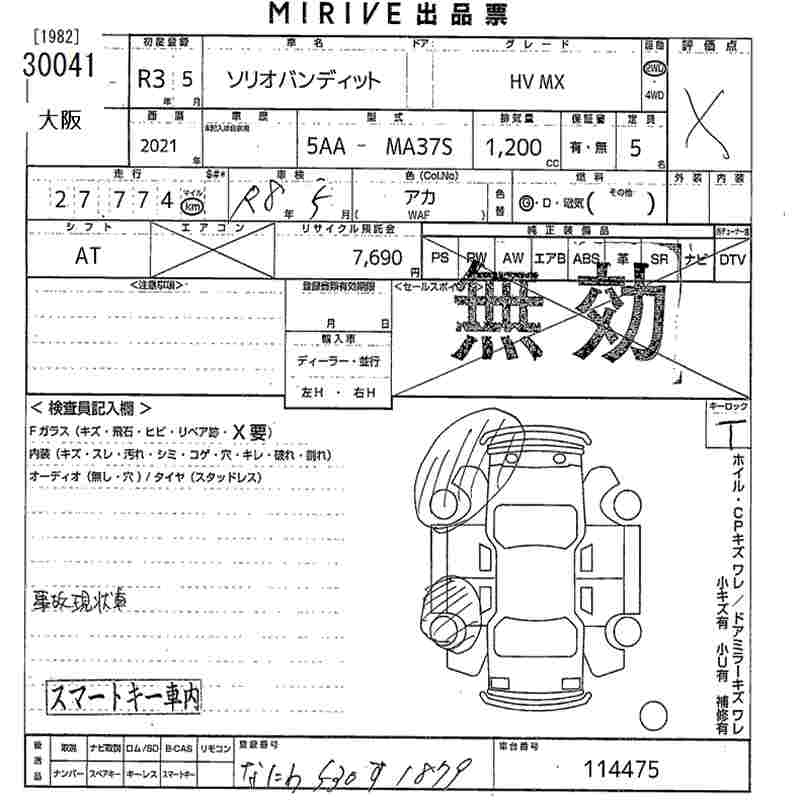 MIRIVE 出品票
[1982]
30041
大阪
初度登録 車名 ドア グレード 評価点
R3 5 ソリオバンディット HV MX 2WD
年 月 4WD
X
西暦 車歴 型式 排気量 保証書 定員
2021年 5AA - MA37S 1,200 CC 有・無 5 名
走行 車検 色 (Col.No) 燃料 外装 内装
27 774 マイル km R8年 5月 アカ 色替 G・D・電気 ( その他 )
( WAF )
シフト エアコン リサイクル預託金 純正装備品
AT 7,690円 PS PW AW エアB ABS 革 SR ナビ DTV
<注意事項> <セールスポイ
無効
月 日
輸入車
ディーラー・並行
左H ・ 右H
< 検査員記入欄 > キーロック
T
Fガラス (キズ・飛石・ヒビ・リペア跡・X要)
内装 (キズ・スレ・汚れ・シミ・コゲ・穴・キレ・破れ・割れ)
オーディオ (無し・穴) / タイヤ (スタッドレス)
ホイル・CPキズ ワレ / ドアミラーキズ ワレ
小キズ有 小U有 補修有
事故現状車
スマートキー車内
後送品 取説 ナビ取説 ロム/SD B-CAS リモコン 登録番号 車台番号
ナンバー スペアキー キーレス スマートキー なにわ 530 す 1879 114475